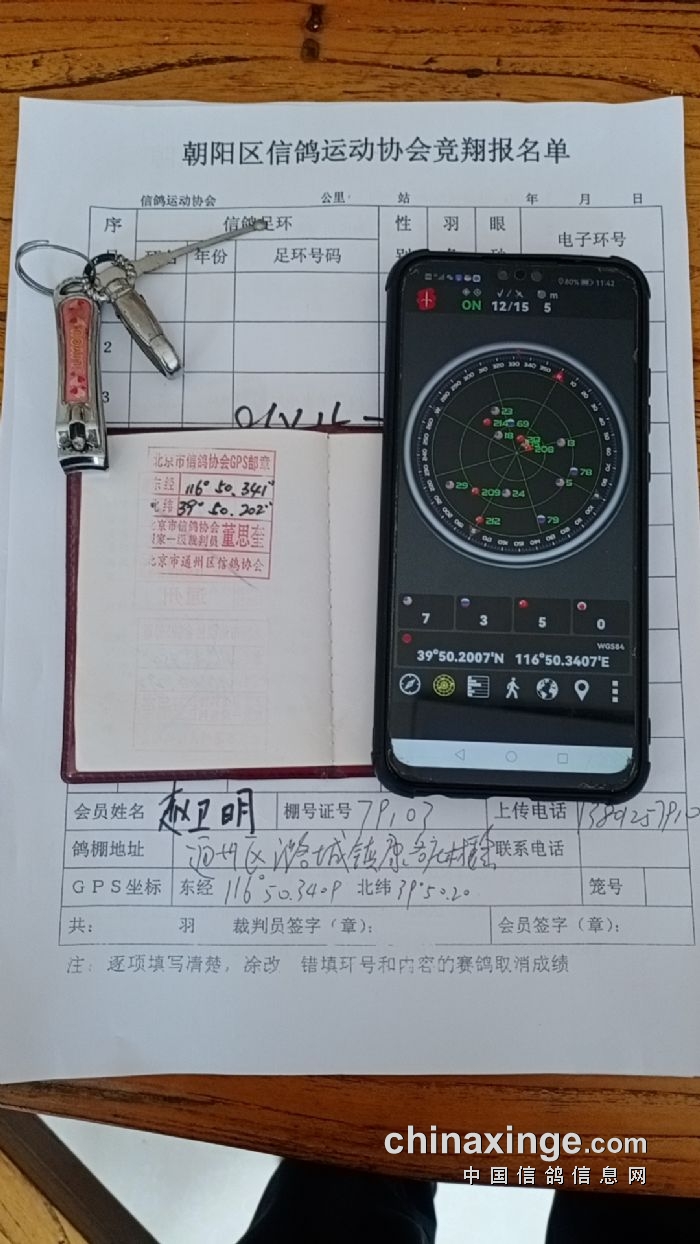 朝阳区信鸽运动协会竞翔报名单
信鸽运动协会 公里 站 年 月 日
序 信鸽足环 性 羽 眼 电子环号
年份 足环号码
2
3
60% 11:42
ON 12/15 5 m
23
214 69
18 13
208
78
29 209 24 5
212 79
7 3 5 0
WGS84
39°50.2007'N 116°50.3407'E
北京市信鸽协会GPS部章
东经 116° 50.341'
北纬 39° 50.202'
北京市信鸽协会
国家一级裁判员 董思奎
北京市通州区信鸽协会
会员姓名 赵卫明 棚号证号 79103 上传电话
鸽棚地址 通州区潞城镇康各庄村 联系电话
GPS坐标 东经 116°50.3409 北纬 39°50.20 笼号
共: 羽 裁判员签字（章）: 会员签字（章）:
注: 逐项填写清楚，涂改 错填环号和内容的赛鸽取消成绩
chinaxinge.com
中国信鸽信息网